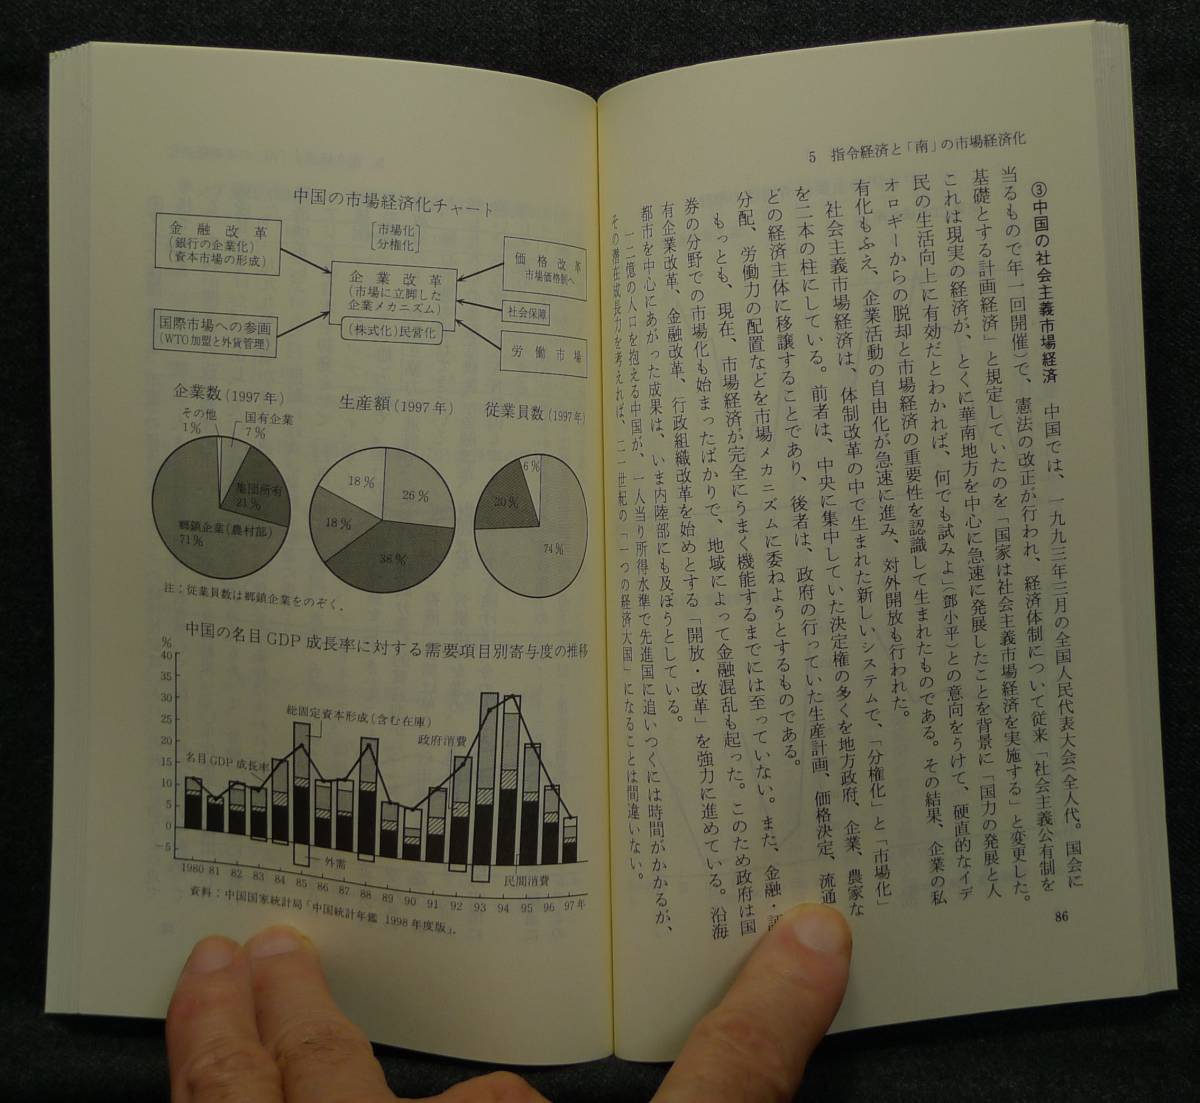 5 指令経済と「南」の市場経済化
③中国の社会主義市場経済 中国では、一九九三年三月の全国人民代表大会(全人代。国会に
当るもので年一回開催)で、憲法の改正が行われ、経済体制について従来「社会主義公有制を
基礎とする計画経済」と規定していたのを「国家は社会主義市場経済を実施する」と変更した。
これは現実の経済が、とくに華南地方を中心に急速に発展したことを背景に「国力の発展と人
民の生活向上に有効だとわかれば、何でも試みよ」(鄧小平)との意向をうけて、硬直的なイデ
オロギーからの脱却と市場経済の重要性を認識して生まれたものである。その結果、企業の私
有化もふえ、企業活動の自由化が急速に進み、対外開放も行われた。
社会主義市場経済は、体制改革の中で生まれた新しいシステムで、「分権化」と「市場化」
を二本の柱にしている。前者は、中央に集中していた決定権の多くを地方政府、企業、農家な
どの経済主体に移譲することであり、後者は、政府の行っていた生産計画、価格決定、流通
分配、労働力の配置などを市場メカニズムに委ねようとするものである。
もっとも、現在、市場経済が完全にうまく機能するまでには至っていない。また、金融・証
券の分野での市場化も始まったばかりで、地域によって金融混乱も起った。このため政府は国
有企業改革、金融改革、行政組織改革を始めとする「開放・改革」を強力に進めている。沿海
都市を中心にあがった成果は、いま内陸部にも及ぼうとしている。
一二億の人口を抱える中国が、一人当り所得水準で先進国に追いつくには時間がかかるが、
その潜在成長力を考えれば、二一世紀の「一つの経済大国」になることは間違いない。
86
中国の市場経済化チャート
金融改革
(銀行の企業化)
(資本市場の形成)
[市場化]
[分権化]
価格改革
市場価格制へ
企業改革
(市場に立脚した
企業メカニズム)
社会保障
国際市場への参画
(WTO加盟と外貨管理)
(株式化)民営化
労働市場
企業数(1997年)
その他
1%
国有企業
7%
集団所有
21%
郷鎮企業(農村部)
71%
生産額(1997年)
18%
26%
18%
38%
従業員数(1997年)
6%
20%
74%
注:従業員数は郷鎮企業をのぞく.
中国の名目GDP成長率に対する需要項目別寄与度の推移
%
40
35
30
25
20
15
10
5
0
-5
総固定資本形成(含む在庫)
政府消費
名目GDP成長率
外需
民間消費
1980 81 82 83 84 85 86 87 88 89 90 91 92 93 94 95 96 97年
資料:中国国家統計局「中国統計年鑑 1998年度版」.